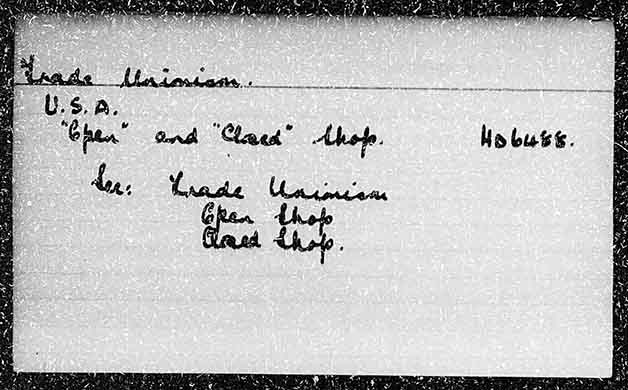 Trade Unionism.
U.S.A.
"Open" and "Closed" Shop. HD6488.
See: Trade Unionism
Open Shop
Closed Shop.